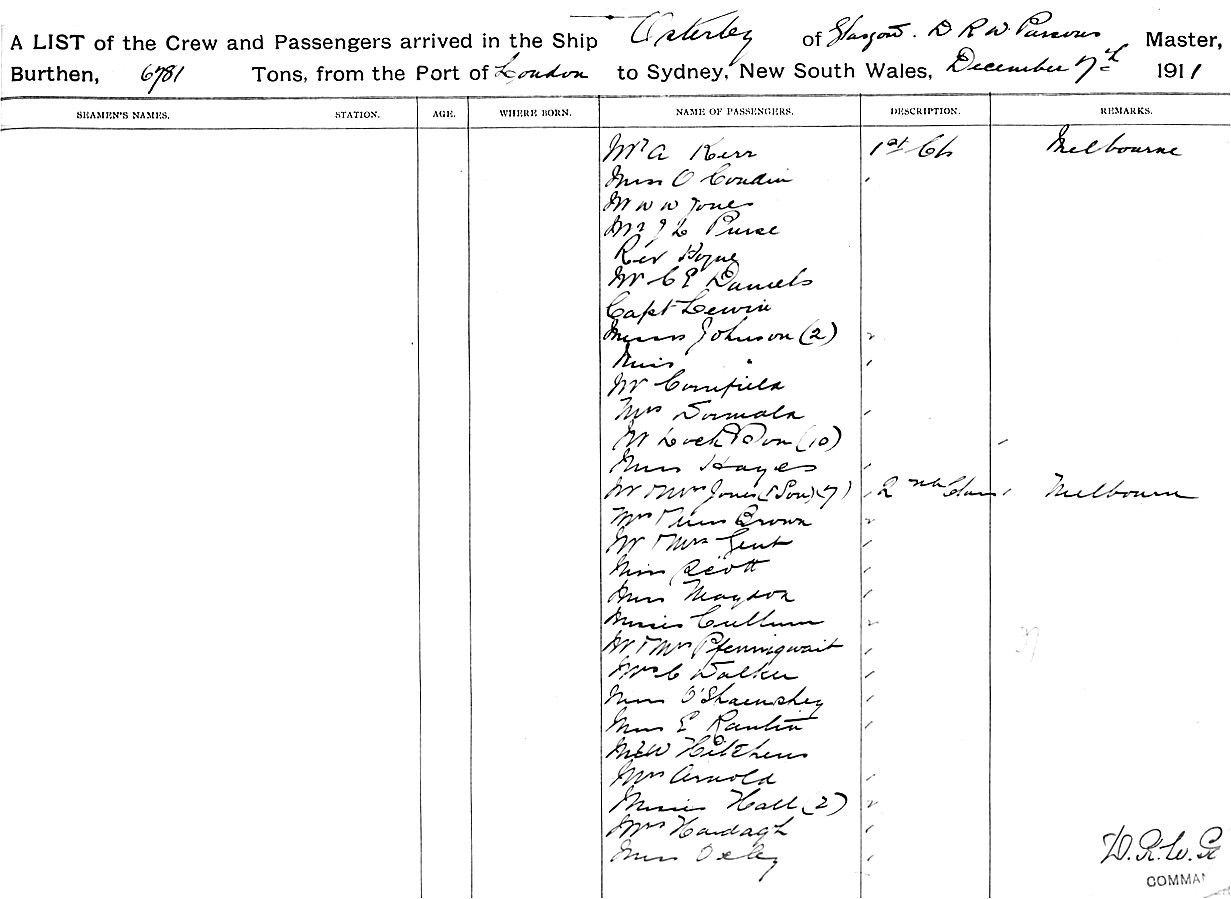 A LIST of the Crew and Passengers arrived in the Ship Osterley of Glasgow. D R W Parsons Master,
Burthen, 6781 Tons, from the Port of London to Sydney, New South Wales, December 7th 1911
SEAMEN'S NAMES. STATION. AGE. WHERE BORN. NAME OF PASSENGERS. DESCRIPTION. REMARKS.
Mr A Kerr 1st Cls Melbourne
Miss O Condin
Mr W W Jones
Mr J L Purse
Rev Hogue
Mr C E Daniels
Capt Lewin
Misses Johnson (2) "
Miss "
Mr Cornfield
Mrs
Mr Lock Don (10)
Miss Hayes
Mr & Mrs Jones (& Son) (7) 2nd Class Melbourne
Mrs & Miss Brown "
Mr & Mrs Gent
Miss Scott
Miss Maydon
Misses Cullum "
Mr & Mrs
Mrs C Walker
Miss O'Shaunshey
Miss E Rankin
Mr W Hitchens
Mrs Arnold
Misses Hall (2) "
Mrs Hardagh
Miss Oxley
D. R. W. Pa
COMMAN